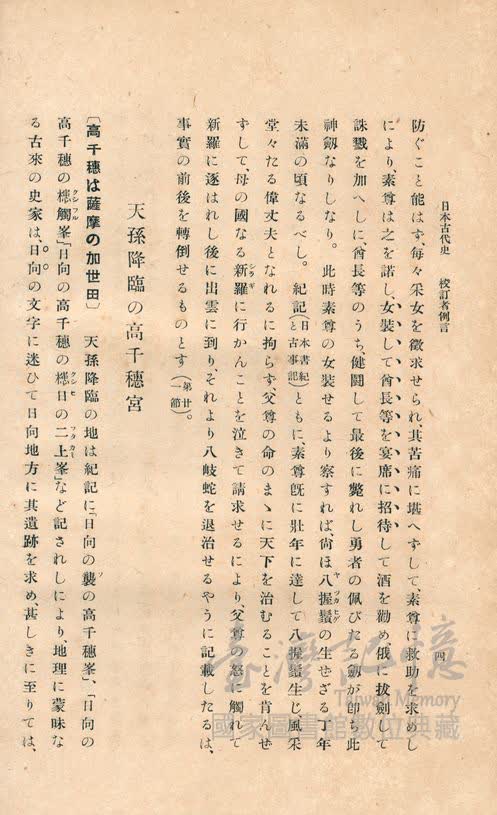 日本古代史　校訂者例言
四
防ぐこと能はず、每々采女を徵求せられ、其苦痛に堪へずして、素尊に救助を求めし
により、素尊は之を諾し、女裝して酋長等を宴席に招待して酒を勸め、俄に拔劍して
誅戮を加へしに、酋長等のうち、健鬪して最後に斃れし勇者の佩びたる劒が卽ち此
神劒なりしなり。此時素尊の女裝せるより察すれば、尙ほ八握鬚の生せざる丁年
未滿の頃なるべし。紀記（日本書紀と古事記）ともに、素尊旣に壯年に達して八握鬚生じ風采
堂々たる偉丈夫となれるに拘らず、父尊の命のまゝに天下を治むることを肯んぜ
ずして、母の國なる新羅に行かんことを泣きて請求せるにより、父尊の怒に觸れて
新羅に逐はれし後に出雲に到り、それより八岐蛇を退治せるやうに記載したるは、
事實の前後を轉倒せるものとす（第廿一節）。
天孫降臨の高千穗宮
〔高千穗は薩摩の加世田〕　天孫降臨の地は紀記に、「日向の襲の高千穗峯」、「日向の
高千穗の槵觸峯」「日向の高千穗の槵日の二上峯」など記されしにより、地理に蒙昧な
る古來の史家は、日向の文字に迷ひて日向地方に其遺跡を求め、甚しきに至りては、
臺灣記憶
Taiwan Memory
國家圖書館數位典藏